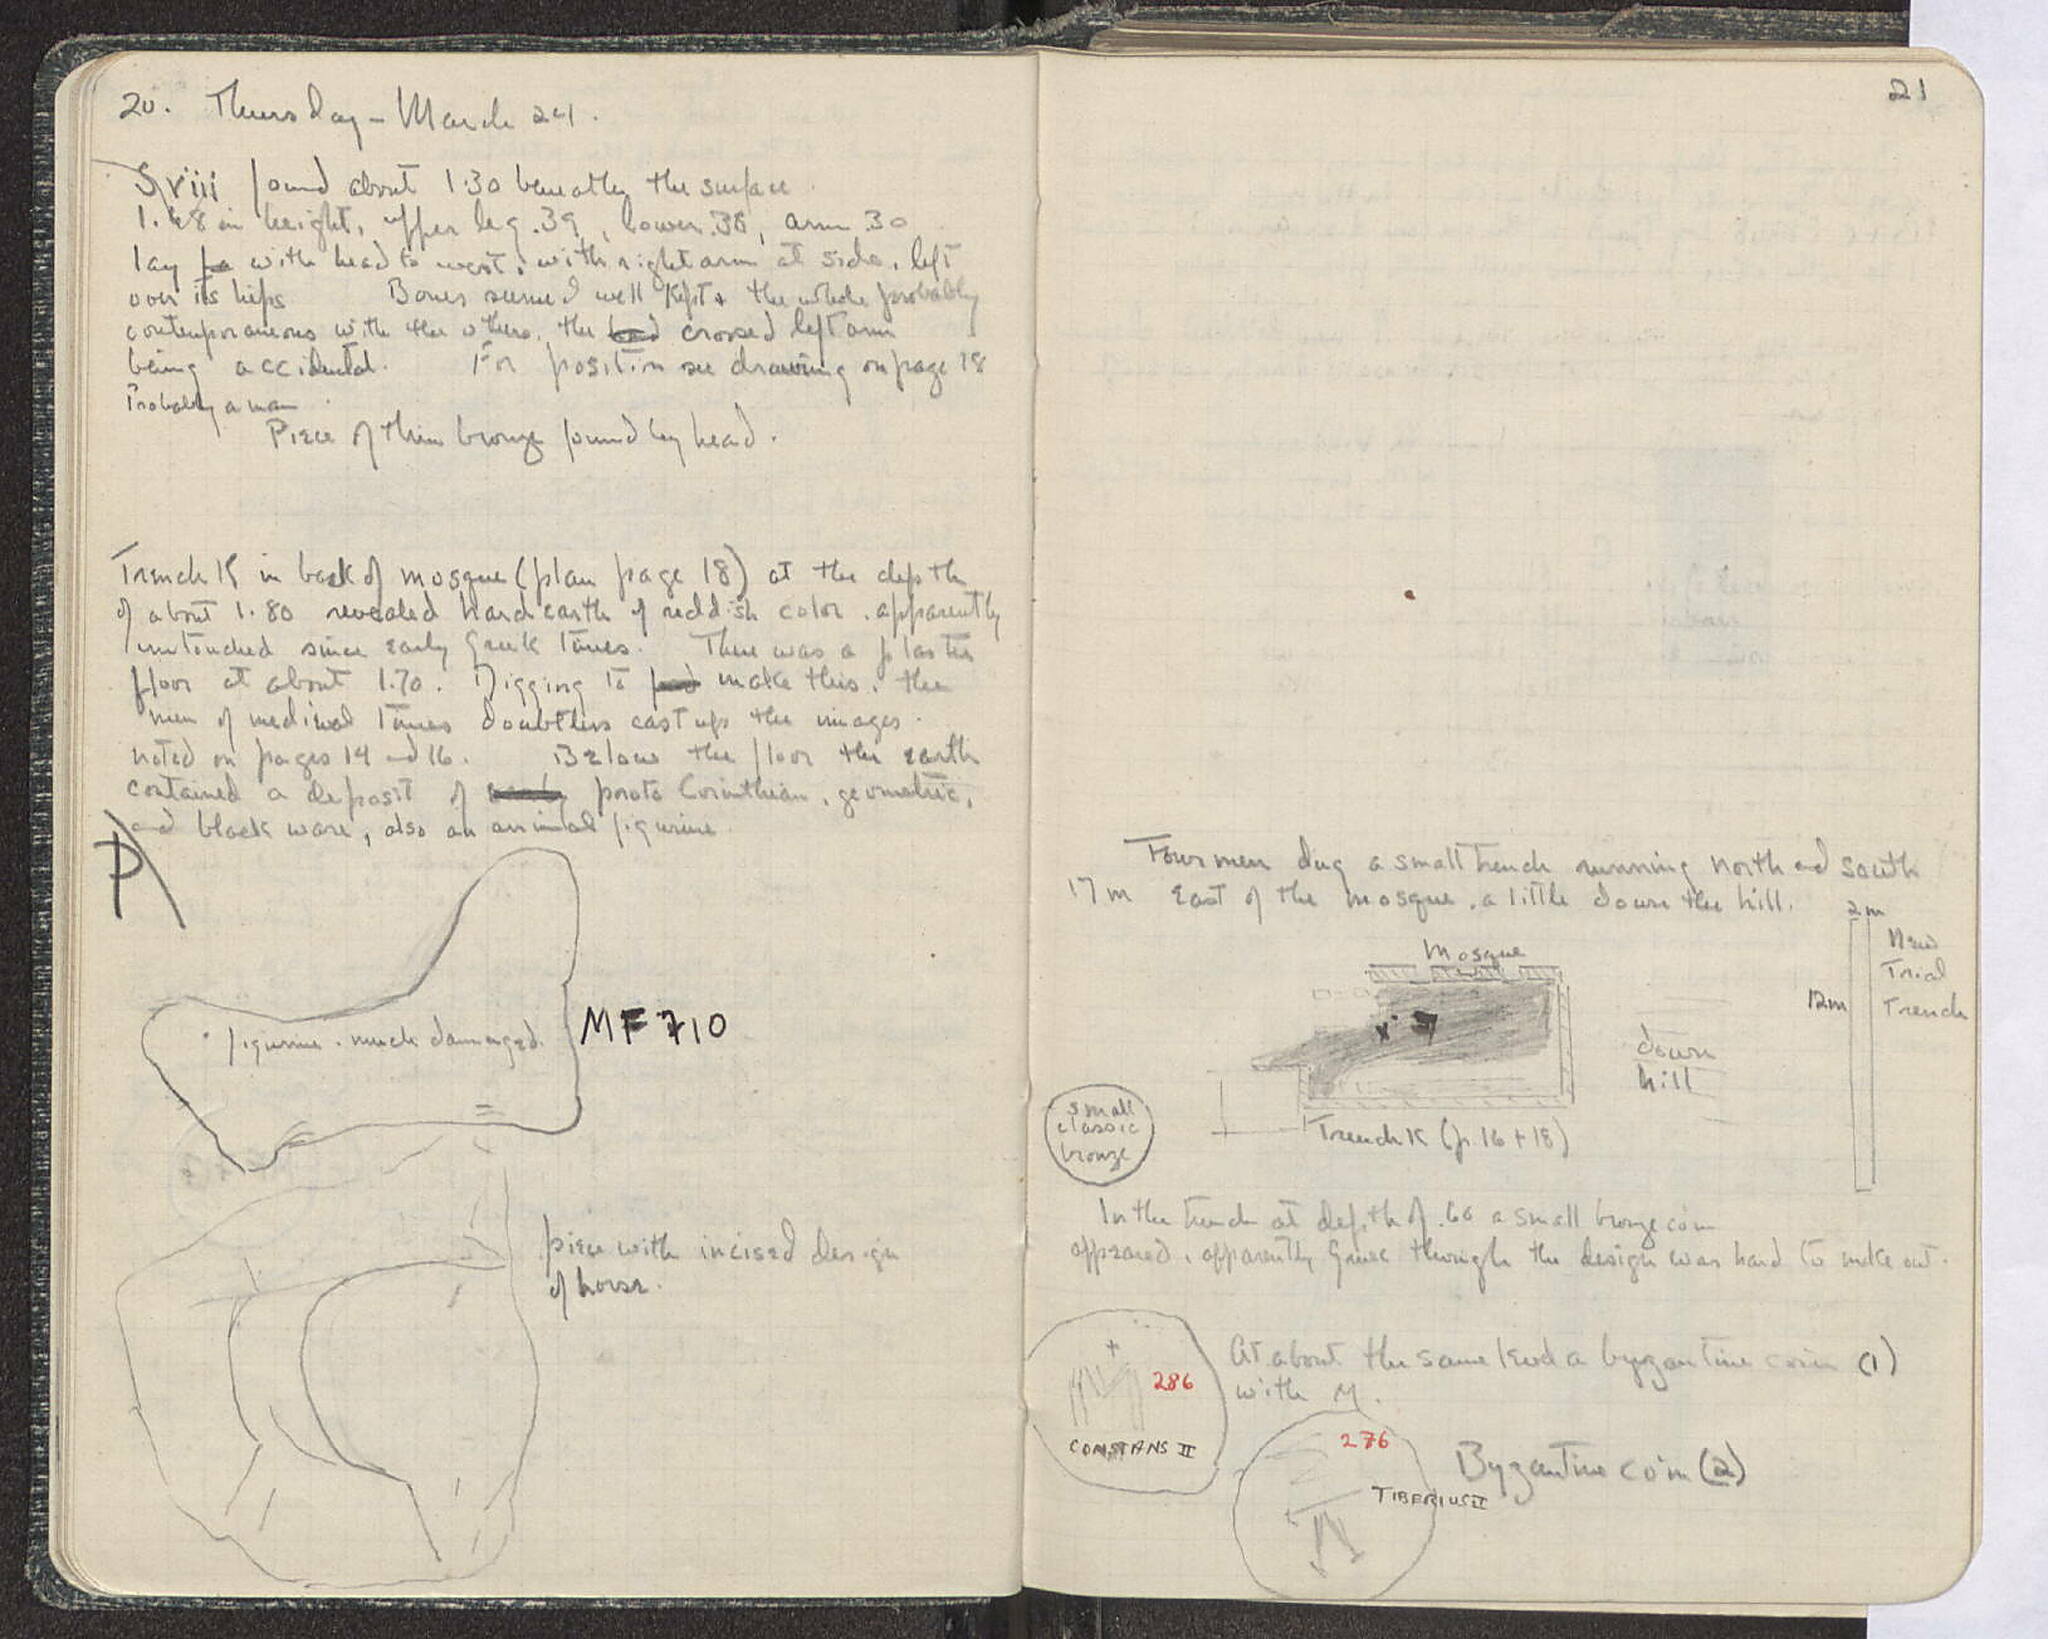 20. Thursday - March 24.
S viii found about 1.30 beneath the surface.
1.48 in height, upper leg .39, lower .38, arm .30
lay with head to west, with right arm at side, left
over its hips Bones seemed well kept + the whole probably
contemporaneous with the others, the crossed left arm
being accidental. For position see drawing on page 18
Probably a man.
Piece of thin bronze found by head.
Trench K in back of mosque (plan page 18) at the depth
of about 1.80 revealed hard earth of reddish color, apparently
untouched since early Greek times. There was a plaster
floor at about 1.70. Digging to make this, the
men of medieval times doubtless cast up the images
noted on pages 14 and 16. Below the floor the earth
contained a deposit of proto Corinthian, geometric,
and black ware, also an animal figurine.
P
figurine - much damaged.
MF 710
piece with incised design
of horse.
21
Four men dug a small trench running north and south
17 m East of the mosque, a little down the hill.
2m
New
Trial
Trench
12m
Mosque
down
hill
small
classic
bronze
Trench K (p. 16 + 18)
In the trench at depth of .60 a small bronze coin
appeared, apparently Greek though the design was hard to make out.
At about the same level a byzantine coin (1)
with M.
286
CONSTANS II
276
TIBERIUS II
Byzantine coin (2)